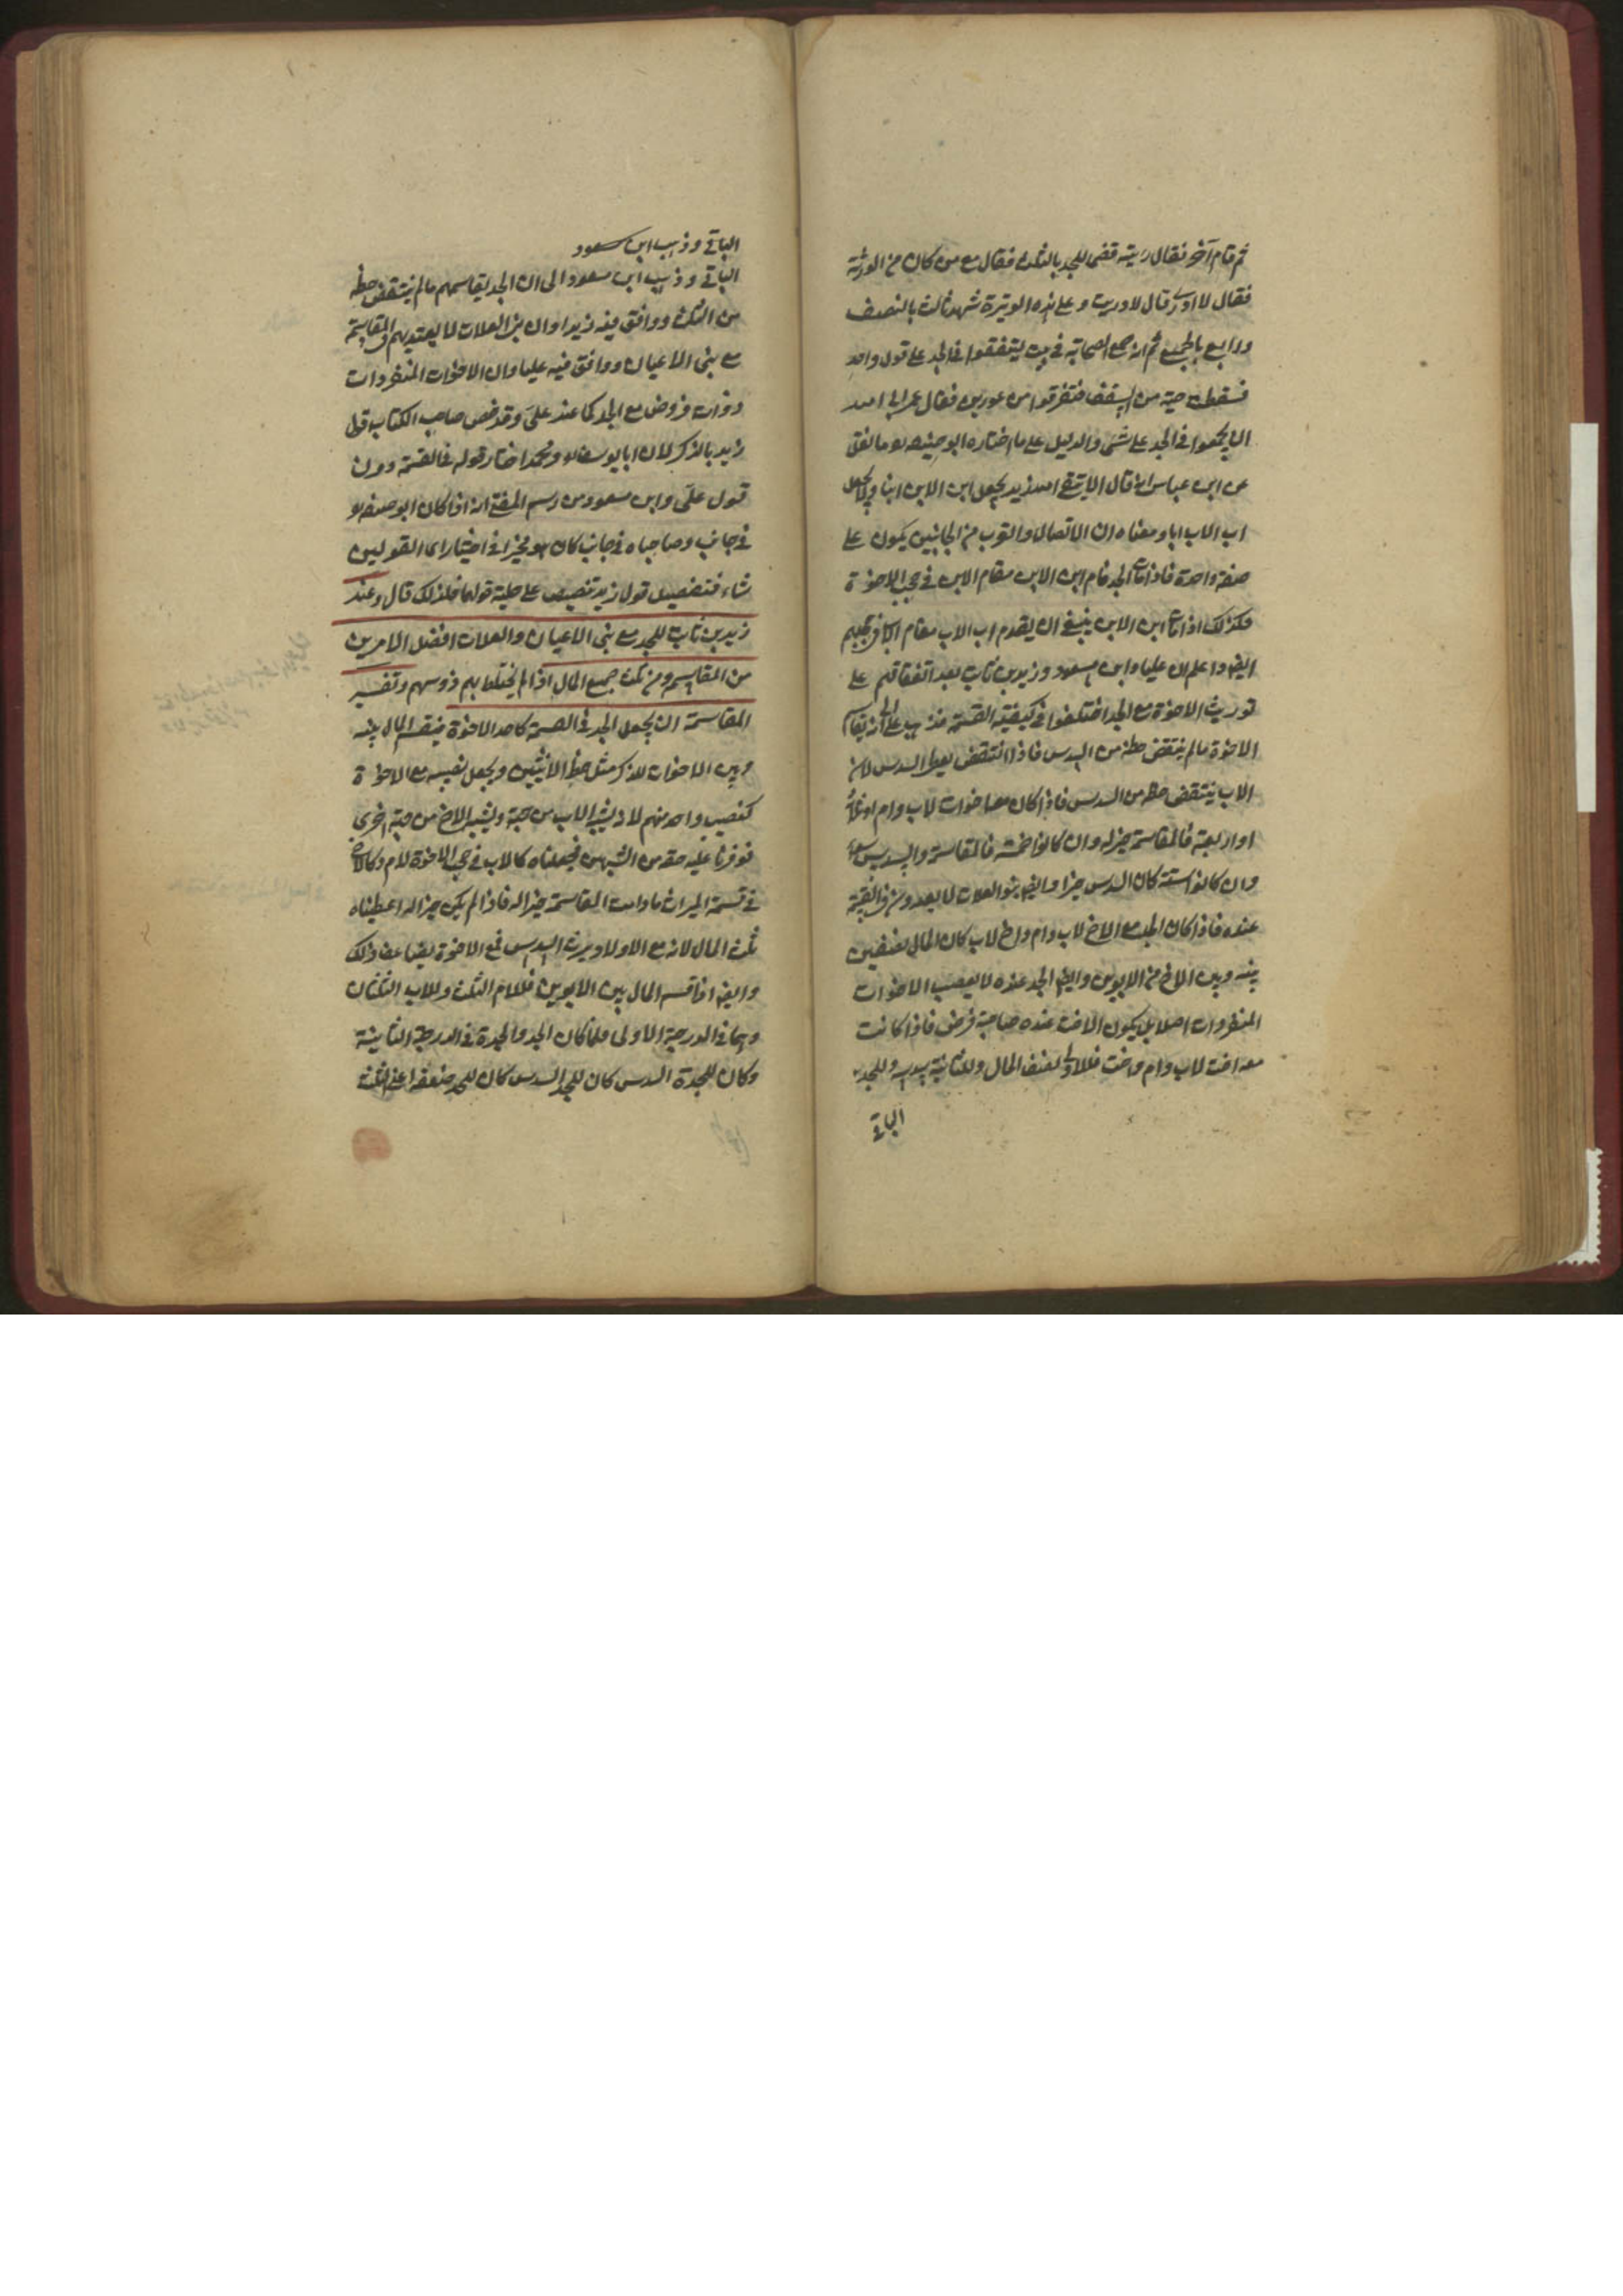 ثم قام آخر فقال رايته قضى للجد بالثلث فقال مع من كان من الورثة
فقال لا ادرى قال لا دريت وعلى هذه الوتيرة شهد ثالث بالنصف
ورابع بالجميع ثم انه جمع الصحابة فى بيت ليتفقوا فى الجد على قول واحد
فسقطت حية من السقف فتفرقوا مذعورين فقال عمر ابى الله
ان يجمعوا فى الجد على شئ والدليل على ما اختاره ابو حنيفة هو ما نقل
عن ابن عباس انه قال الا يتقى الله زيد يجعل ابن الابن ابنا ولا يجعل
اب الاب ابا ومعناه ان الاتصال والقرب من الجانبين يكون على
صفة واحدة فاذا مات الجد قام ابن الابن مقام الابن فى حجب الاخوة
فكذلك اذا مات ابن الابن ينبغى ان يقدم اب الاب مقام الاب فى حجبهم
ايضا واعلم ان عليا وابن مسعود وزيد بن ثابت بعد اتفاقهم على
توريث الاخوة مع الجد اختلفوا فى كيفية القسمة فذهب على الى انه يقاسم
الاخوة ما لم ينتقض حظه من السدس فاذا انتقض يعطى السدس لان
الاب ينتقض حظه من السدس فاذا كان معه اخوات لاب وام او ثلثة
او اربعة فالمقاسمة خير له وان كانوا خمسة فالمقاسمة والسدس سواء
وان كانوا ستة كان السدس خيرا وايضا بنو العلات لا يعدون فى القسمة
عنده فاذا كان الجد مع الاخ لاب وام واخ لاب كان المال نصفين
بينه وبين الاخ من الابوين وايضا الجد عنده لا يعصب الاخوات
المنفردات اصلا بل يكون الاخت عنده صاحبة فرض فاذا كانت
معه اخت لاب وام واخت فللاولى نصف المال وللثانية سدسه وللجد
الباقى
الباقى وذهب ابن مسعود
الباقى وذهب ابن مسعود الى ان الجد يقاسمهم ما لم ينتقض حظه
من الثلث ووافق فيه زيدا وان بنى العلات لا يعتد بهم فى المقاسمة
مع بنى الاعيان ووافق فيه عليا وان الاخوات المنفردات
ذوات فروض مع الجد كما عند على وقد خص صاحب الكتاب قول
زيد بالذكر لان ابا يوسف ومحمد اختار قوله فى القسمة دون
قول على وابن مسعود ومن رسم المفتى انه اذا كان ابو حنيفة
فى جانب وصاحباه فى جانب كان هو مخيرا فى اختيار اى القولين
شاء فتخصيص قول زيد تنصيص على قولهما فلذلك قال وعند
زيد بن ثابت للجد مع بنى الاعيان والعلات افضل الامرين
من المقاسمة ومن ثلث جميع المال اذا لم يختلط بهم ذو سهم وتفسير
المقاسمة ان يجعل الجد فى القسمة كاحد الاخوة فيقسم المال بينه
وبين الاخوات للذكر مثل حظ الانثيين ويجعل نصيبه مع الاخوة
كنصيب واحد منهم لانه يشبه الاب من جهة ويشبه الاخ من جهة اخرى
فوفرنا عليه حقه من الشبهين فجعلناه كالاب فى حجب الاخوة لام وكالاخ
فى قسمة الميراث ما دامت المقاسمة خيرا له فاذا لم يكن خيرا له اعطيناه
ثلث المال لانه مع الاولاد يرث السدس فمع الاخوة يضاعف ذلك
وايضا اذا قسم المال بين الابوين فللام الثلث وللاب الثلثان
وهما فى الدرجة الاولى فلما كان الجد والجدة فى الدرجة الثانية
وكان للجدة السدس كان للجد السدس كان للجد ضعفه اعنى الثلث